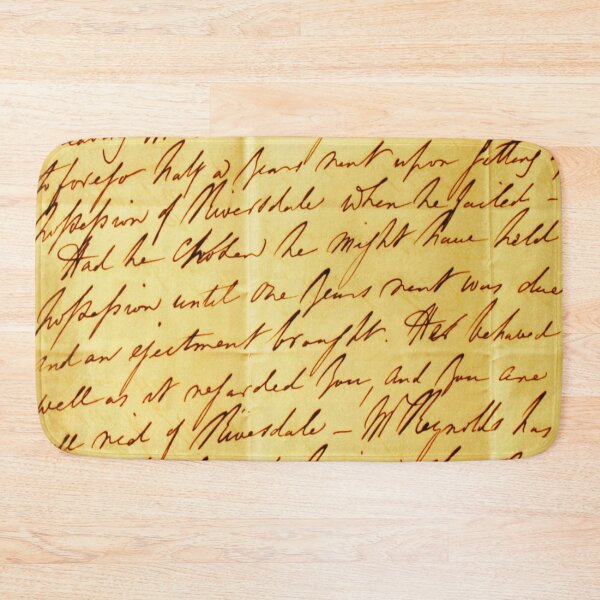 to forego half a years rent upon getting
possession of Riversdale when he failed -
Had he chosen he might have held
possession until one years rent was due
and an ejectment brought. He behaved
well as it regarded you, and you are
rid of Riversdale - Mr Reynolds has